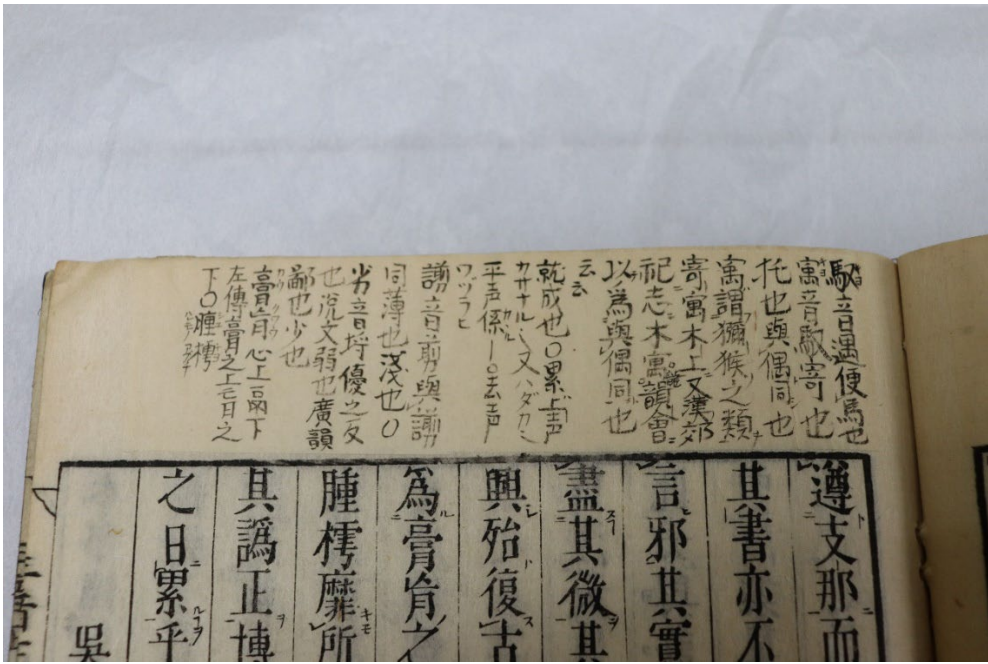 馭音遇使馬也
寓音馭寄也
托也與偶同也
寓謂獼猴之類
寄寓木上又漢郊
祀志木寓韻會
以為與偶同也
云云
就成也〇累上声
カサナル又ハダカ
平声係ー〇去声
ワツラヒ
譾音剪與謭
同薄也浅也〇
劣音埒優之反
也説文弱也廣韻
鄙也少也
膏肓心上鬲下
左傳膏之上肓之
下〇腫樗
遵支那而
其書亦不
言邪其實
盡其微其
興殆復古
為膏肓之
腫樗靡所
其譌正博
之日累乎
吳